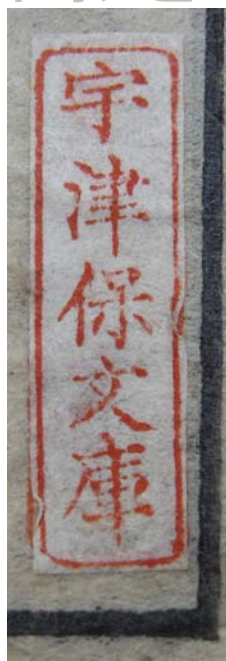 宇津保文庫